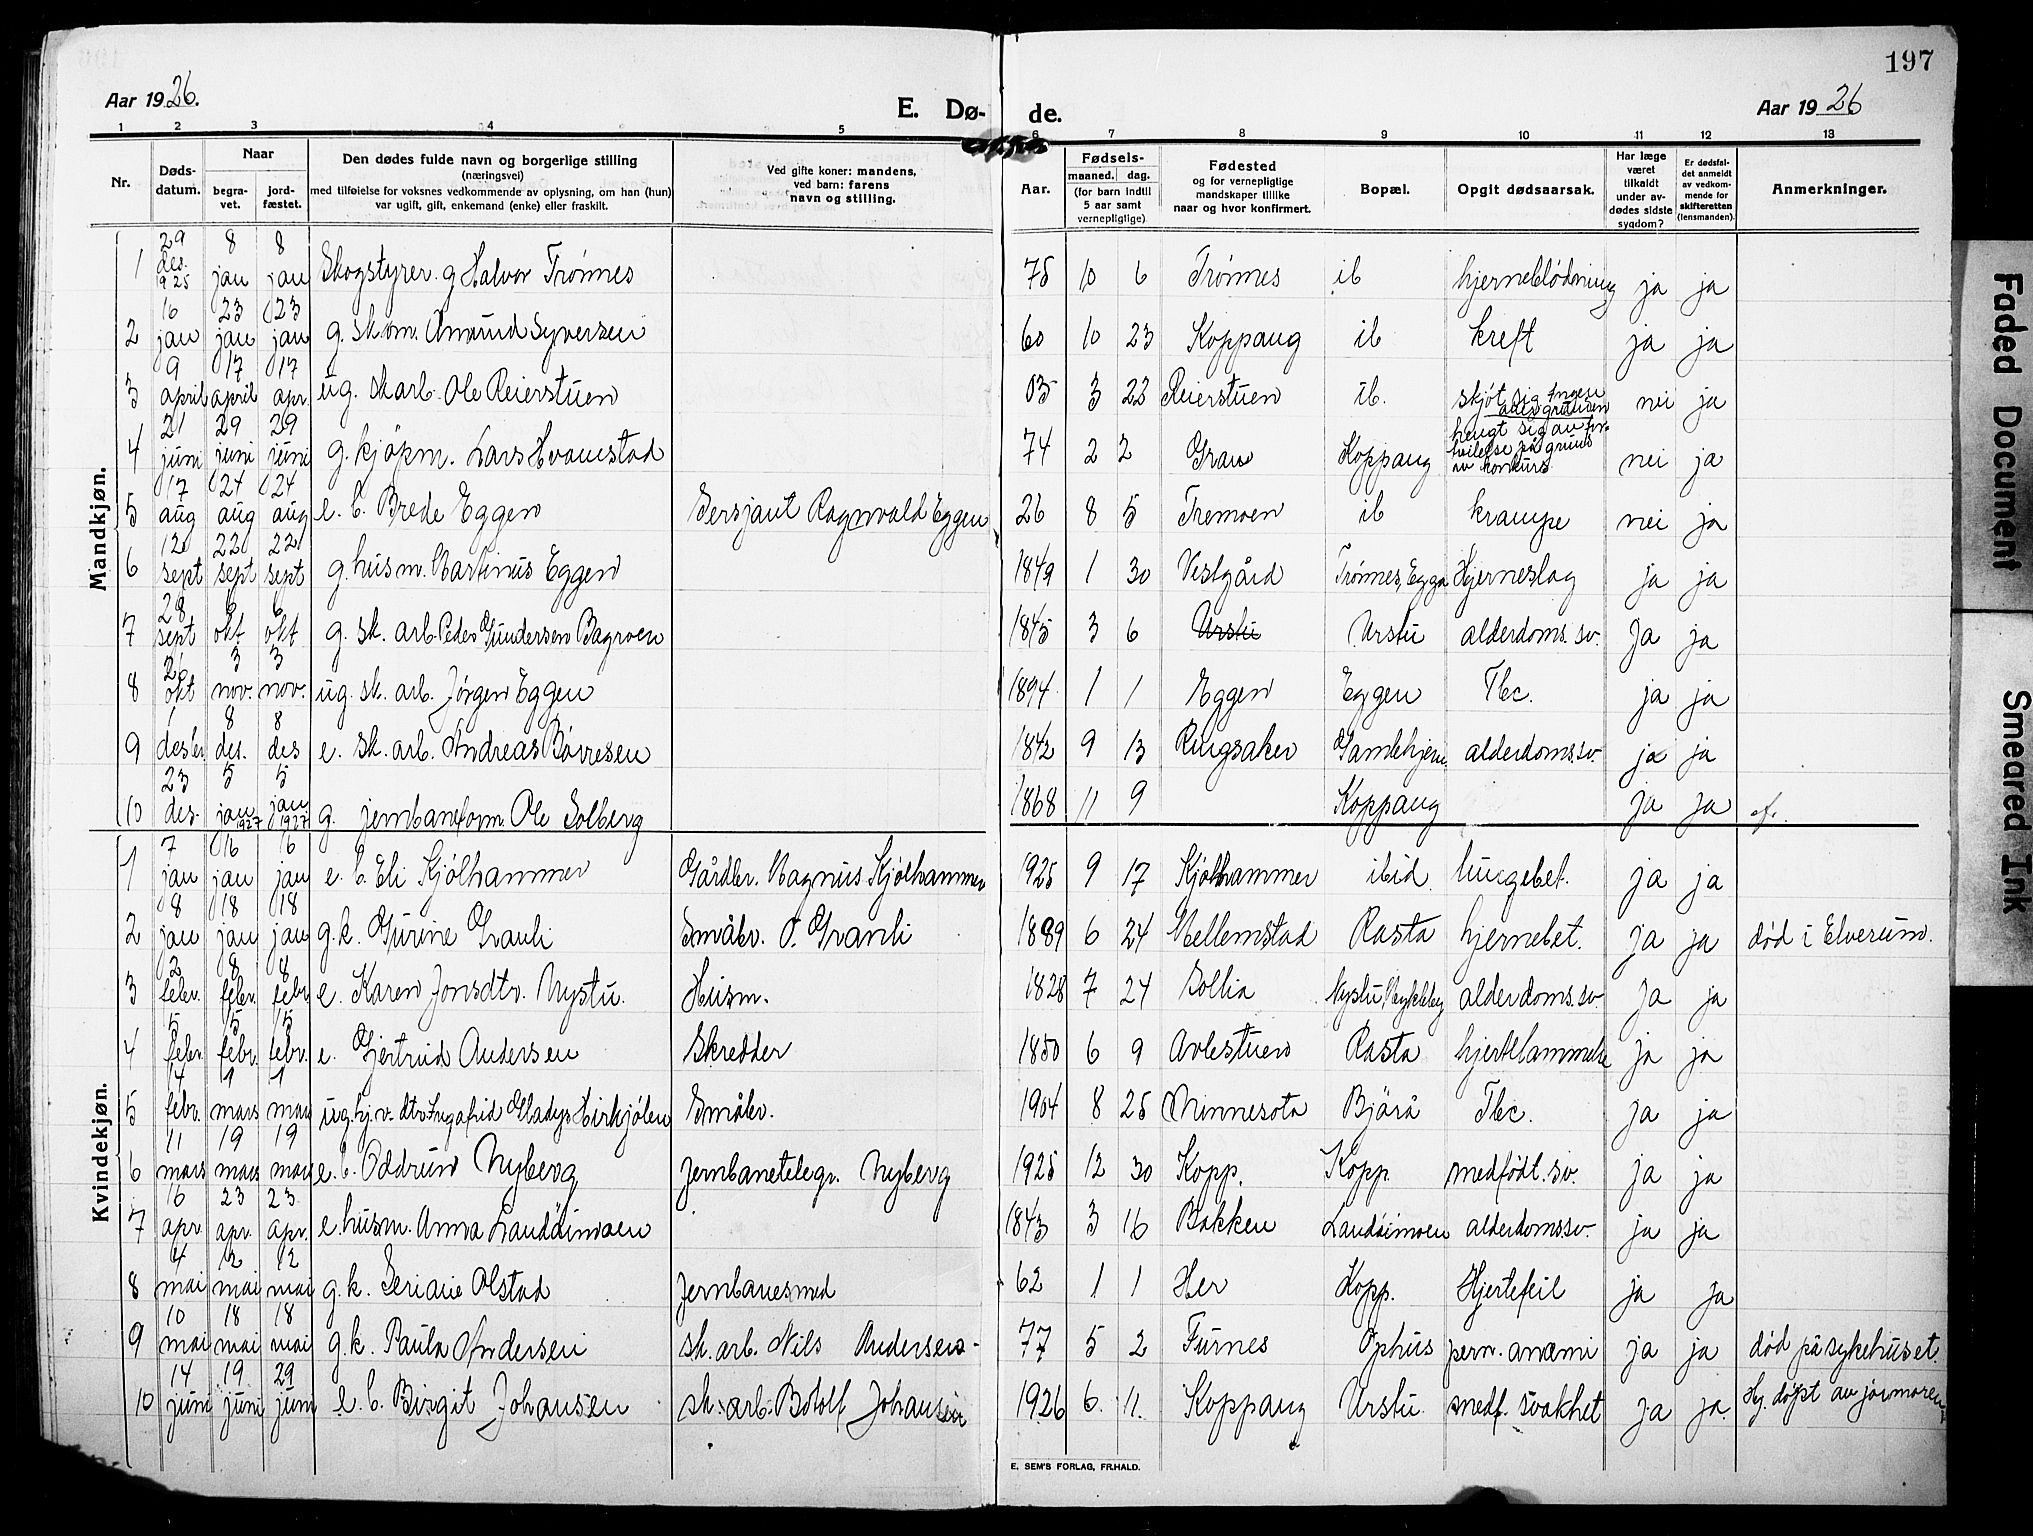 197
Aar 1926.
E. Dø-
de.
Aar 1926
1 2 3 4 5 6 7 8 9 10 11 12 13
Nr.
Døds-datum.
Naar
begra-vet.
jord-fæstet.
Den dødes fulde navn og borgerlige stilling
(næringsvei)
med tilføielse for voksnes vedkommende av oplysning, om han (hun)
var ugift, gift, enkemand (enke) eller fraskilt.
Ved gifte koner: mandens,
ved barn: farens
navn og stilling.
Aar.
Fødsels-
maaned. dag.
(for barn indtil
5 aar samt
vernepligtige).
Fødested
og for vernepligtige
mandskaper tillike
naar og hvor konfirmert.
Bopæl.
Opgit dødsaarsak.
Har læge
været
tilkaldt
under av-
dødes sidste
sygdom?
Er dødsfal-
det anmeldt
av vedkom-
mende for
skifteretten
(lensmanden).
Anmerkninger.
Mandkjøn.
1 29 des. 1925 8 jan 8 jan Skogstyrer. g Halvor Trønnes 75 10 6 Trønnes ib hjerneblødning ja ja
2 16 jan 23 jan 23 jan g. sk.om. Amund Syversen 60 10 23 Koppang ib kreft ja ja
3 9 april 17 april 17 apr ug. sk arb. Ole Reierstuen 05 3 23 Reierstuen ib. skjøt sig ingen anden grunden nei ja
4 21 juni 29 juni 29 juni g. kjøpm. Lars Hvamstad 74 2 2 Gran Koppang hengt sig av på grunds av konkurs nei ja
5 17 aug 24 aug 24 aug e. b. Brede Eggen Sersjant Ragnvald Eggen 26 8 5 Tremoen ib krampe nei ja
6 12 sept 22 sept 22 sept g. husm. Martinus Eggen 1849 1 30 Vestgård Trønnes, Eggen Hjerneslag ja ja
7 28 sept 6 okt 6 okt g. sk. arb. Peder Gundersen Bagroen 1845 3 6 Urstu Urstu alderdoms.sv. Ja ja
8 26 okt 3 nov. 3 nov. ug. sk. arb. Jørgen Eggen 1894 1 1 Eggen Eggen Tbc. ja ja
9 1 desbr 8 des. 8 des e. sk. arb. Andreas Børresen 1842 9 13 Ringsaker alderdoms.sv. ja ja
10 23 des. 5 jan 1927 5 jan 1927 g. jernbaneform. Ole Solberg 1868 11 9 Koppang ja ja
Kvindekjøn.
1 7 jan 16 jan 16 jan e. b. Eli Kjølhammer Gårdbr. Magnus Kjølhammer 1925 9 17 Kjølhammer ibid. lungebet. ja ja
2 8 jan 18 jan 18 jan g.k. Gurine Granli Småbr. O. Granli 1889 6 24 Mellemstad Rasta hjernebet. ja ja død i Elverum.
3 2 febr. 8 febr. 8 febr e. Karen Jonsdtr. Nystu. Husm. 1828 7 24 Sollia Nystu, alderdoms.sv. Ja ja
4 5 febr. 15 febr. 15 febr. e. Gjertrud Andersen Skredder 1850 6 9 Avlestuen Rasta hjertelammelse ja ja
5 14 febr. 1 mars 1 mars ug. hj.v. dtr. Ingafrid Gladys Hirkjølen Småbr. 1904 8 25 Minnesota Bjørå Tbc. ja ja
6 11 mars 19 mars 19 mars e. b. Oddrun Nyberg Jernbanetelegr. Nyberg 1925 12 30 Kopp. Kopp. medfødt. sv. ja ja
7 16 apr 23 apr. 23 apr. e. husm. Anna Landåimoen 1843 3 16 Bakken Landåimoen alderdomssv. ja ja
8 4 mai 12 mai 12 mai g.k. Seriane Olstad Jernbanesmed 62 1 1 Her Kopp. Hjertefeil ja ja
9 10 mai 18 mai 18 mai g.k. Paula Andersen sk. arb. Nils Andersen 77 5 2 Furnes Ophus pern. anæmi ja ja død på sykehuset.
10 14 juni 19 juni 29 juni e. b. Birgit Johansen sk. arb. Botolf Johansen 1926 6. 11. Koppang Urstu medf. svakhet ja ja. Hj. døpt av jormoren
E. SEM'S FORLAG, FR.HALD.
Faded Document
Smeared Ink